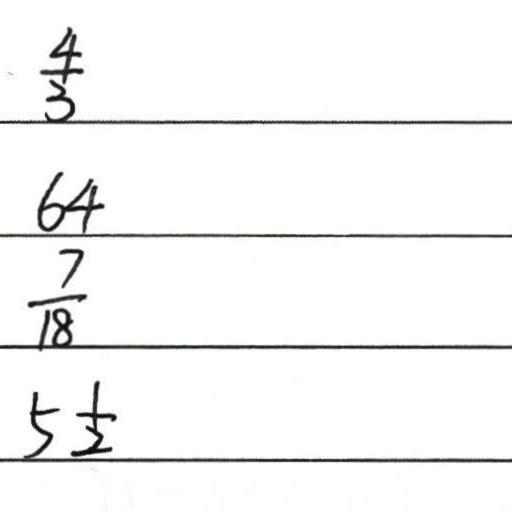 4/3
64
7/18
5 1/2